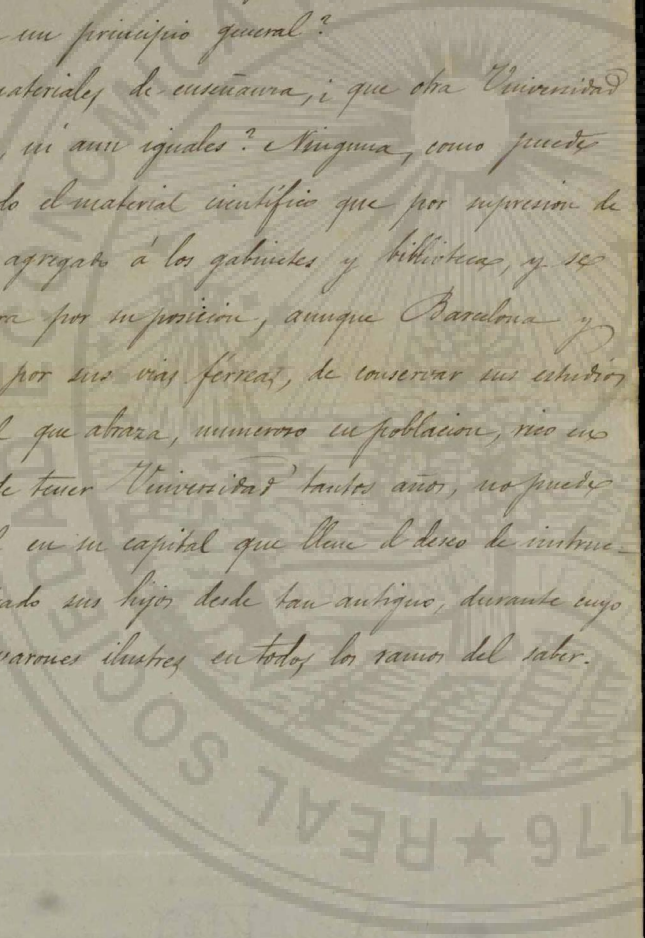 un principio general?
materiales de enseñanza, ¿ que otra Universidad
, ni aun iguales? Ninguna, como puede
el material científico que por supresion de
agregado á los gabinetes y biblioteca, y se
por su posicion, aunque Barcelona y
por sus vias férreas, de conservar sus estudios
que abraza, numeroso en poblacion, rico en
de tener Universidad tantos años, no puede
en su capital que llene el deseo de instruc-
sus hijos desde tan antiguo, durante cuyo
varones ilustres en todos los ramos del saber.
REAL SOCIEDAD ECONOM
1776 ★